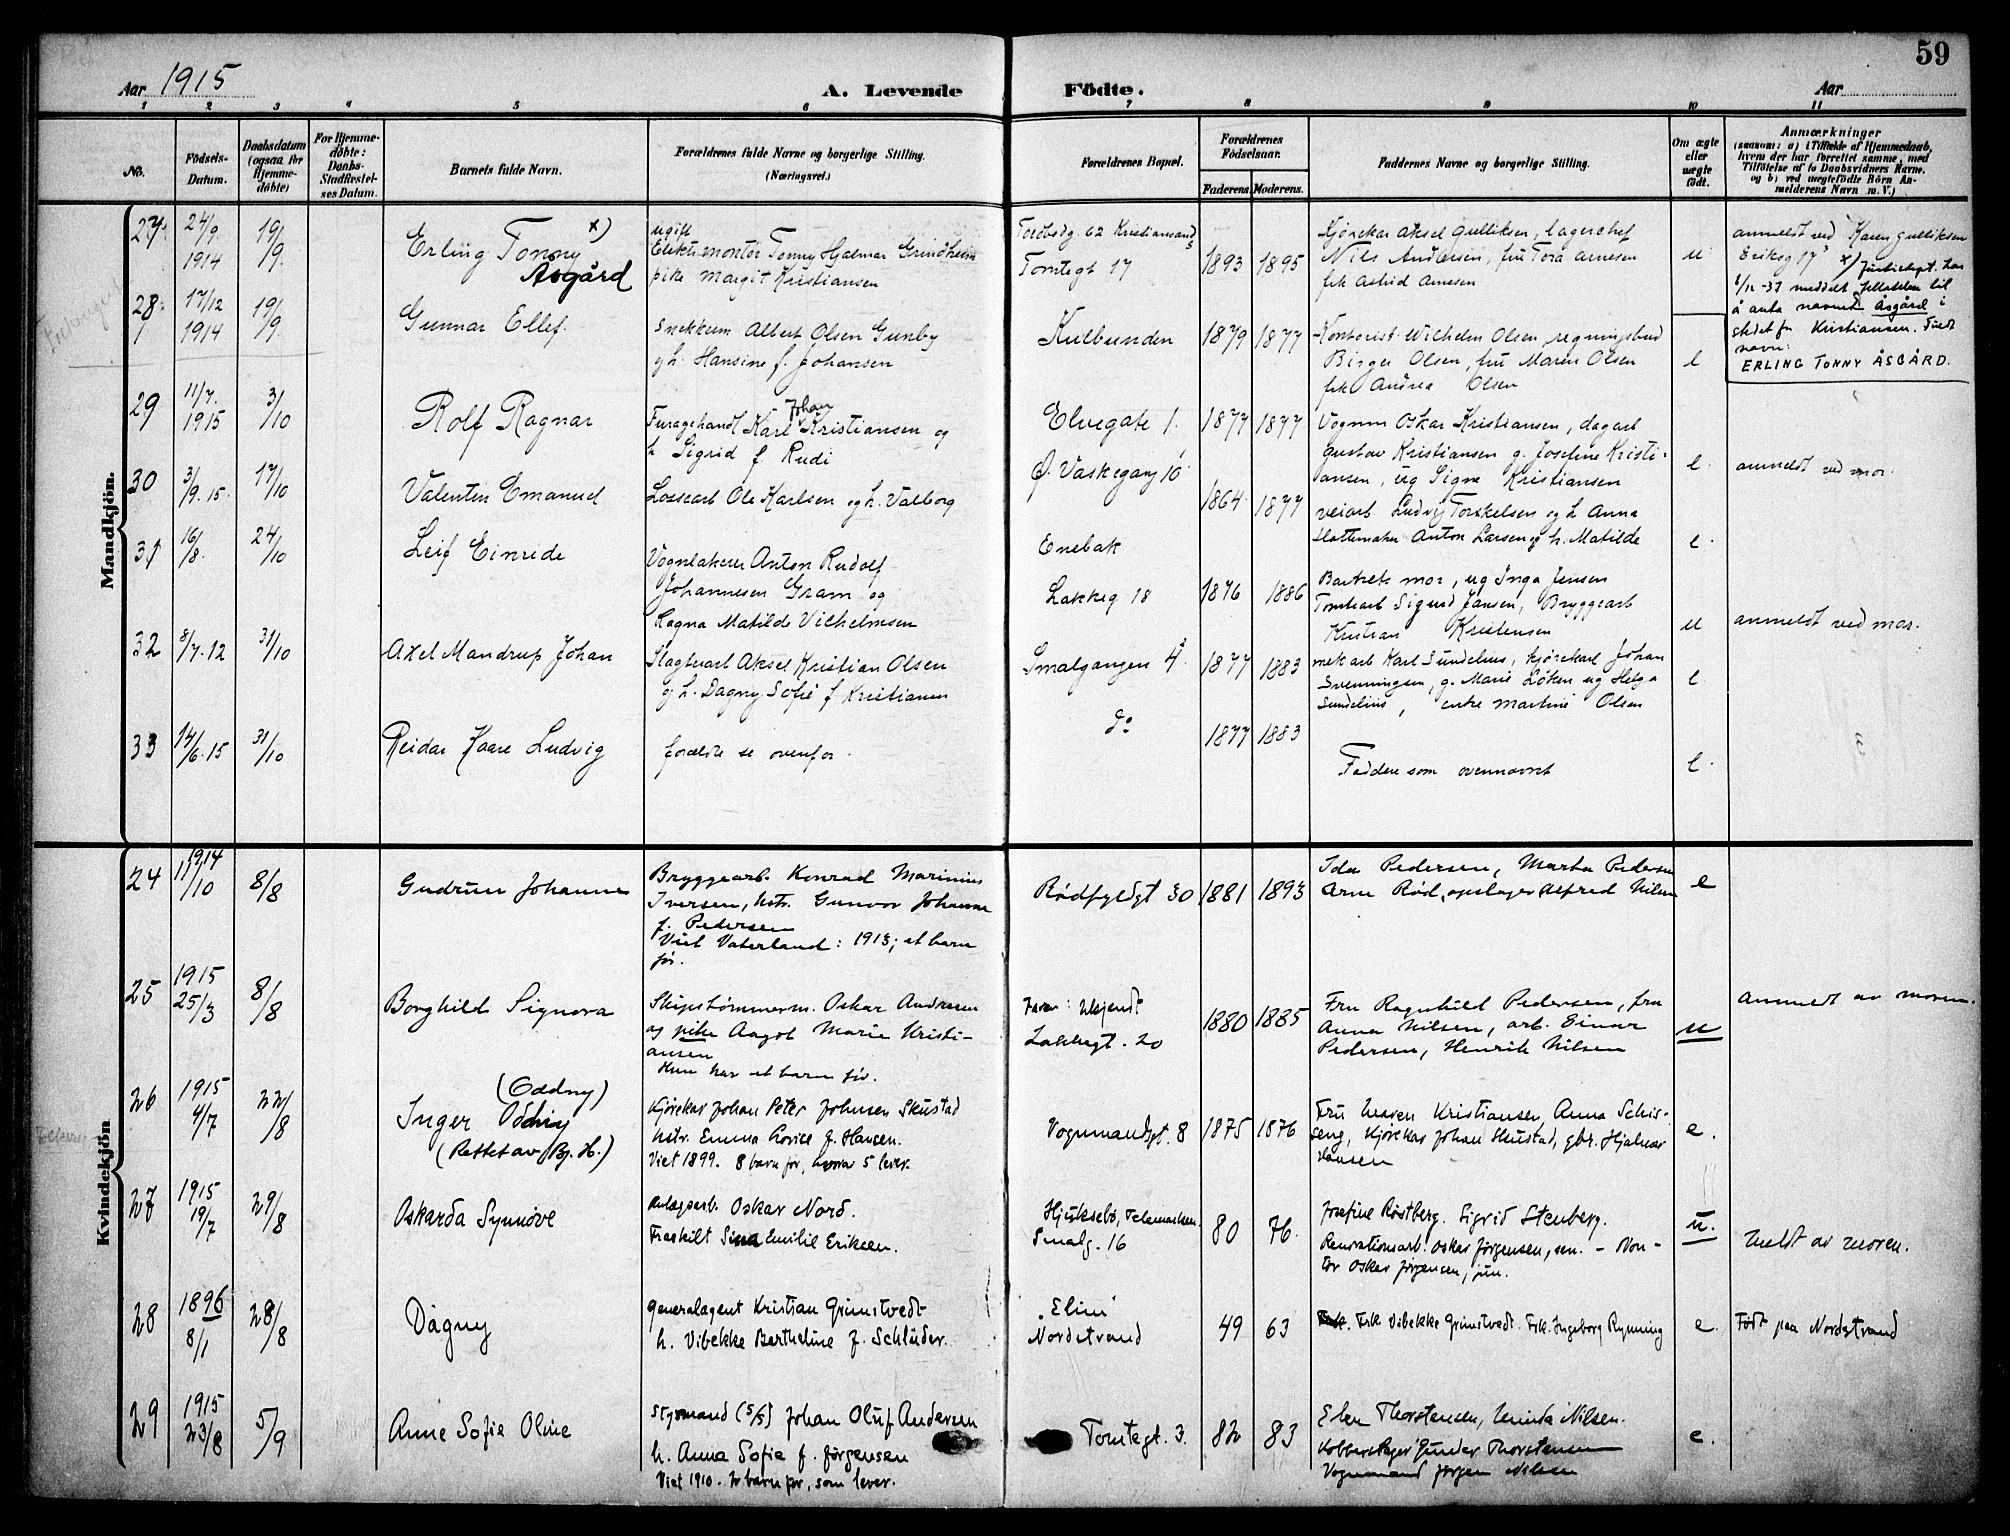 59
Aar 1915
A. Levende
Fødte.
Aar
1 2 3 4 5 6 7 8 9 10 11
No.
Födsels-Datum.
Daabsdatum (ogsaa for Hjemme-døbte)
For Hjemme-døbte: Daabs-Stadfæstel-ses Datum.
Barnets fulde Navn.
Forældrenes fulde Navne og borgerlige Stilling. (Næringsvei.)
Forældrenes Bopæl.
Forældrenes Fødselsaar.
Faderens. Moderens.
Faddernes Navne og borgerlige Stilling.
Om ægte eller uægte født.
Anmærkninger
(saasom: a) i Tilfælde af Hjemmedaab, hvem der har forrettet samme, med Tilføielse af to Daabsvidners Navne. og b) ved uægtefødte Børn An-melderens Navn m. V.)
Mandkjön.
27 24/9. 1914 19/9. Erling Tonny x) Åsgård
ugift
Elektr.montör Tonny Hjalmar Grindheim
pike Margit Kristiansen
Kristiansand S
Tomtegt 17
1893 1895
Kjörekar Aksel Gulliksen, lagerchef
Nils Andersen, fru Tora Arnesen
frk Astrid Arnesen
u
anmeldt ved Karen Gulliksen
Eriksg 17
x)
meddelt tillatelse til
å anta navnet Åsgård i
stedet fr Kristiansen. Fuldt
navn:
ERLING TONNY ÅSGÅRD.
28 17/12 1914 19/9. Gunnar Ellef.
Snekkerm Albert Olsen Gunby
og h. Hansine f. Johansen
Kulbunden
1879 1877
Kontorist Wilhelm Olsen, regningsbud
Birger Olsen, fru Maren Olsen
frk Andrea Olsen
e
29 11/7. 1915 3/10 Rolf Ragnar
Furagehandl Karl Johan Kristiansen og
h Sigrid f. Rudi
Elvegate 1.
1877 1877
Vognm Oskar Kristiansen, dagarb
Gustav Kristiansen g. Josefine Kristi-
ansen, ug Signe Kristiansen
e.
anmeldt ved mor.
30 3/9. 15. 17/10 Valenten Emanuel
Lossearb Ole Karlsen og h. Valborg
Ø. Vaskegang 10
1864. 1877
veiarb Ludvig Torskelsen og h Anna
Slottemaker Anton Larsen og h. Matilde
e.
31 16/8. 24/10 Leif Einride
Vognlakerer Anton Rudolf
Johannesen Gram og
Ragna Matilde Vilhelmsen
Enebak
Lakkeg 18
1876 1886
Barnets mor, ug Inga Jensen
Tomtearb Sigurd Jansen, Bryggearb
Kristian Kristensen
u
anmeldt ved mor.
32 8/7. 12 31/10 Axel Mandrup Johan
Slagterarb Aksel Kristian Olsen
og h. Dagny Sofie f Kristiansen
Smalgangen 4.
1877 1883
mek arb Karl Sundelius, kjørekarl Johan
Svenningsen, g. Marie Løken ug Helga
Sundelius, enke Martine Olsen
e
33 14/6. 15 31/10 Reidar Kaare Ludvig
forældre se ovenfor.
do
1877 1883
Faddere som ovennævnt
e.
Kvindekjön
24 1914 11/10 8/8 Gudrun Johanne
Bryggearb. Konrad Marinius
Iversen, hstr. Gunvor Johanne
f. Pedersen
Viet Vaterland: 1913; et barn
før.
Rødfyldgt 30
1881 1893
Ida Pedersen, Marta Pedersen
Arne Rød, opslager Alfred Nilsen
e
25 1915 25/3 8/8 Borghild Signora
Skipstømmerm. Oskar Andresen
og pike Aagot Marie Kristi-
ansen
Hun har et barn før.
Faren: Ukjendt
Lakkegt. 20
1880 1885
Fru Ragnhild Pedersen, fru
Anna Nilsen, arb. Einar
Pedersen, Henrik Nilsen
u
Anmeldt av moren.
26 1915 4/7 22/8 Inger Oddny
(Oddny)
(Rettet av Bj. H.)
Kjørekar Johan Peter Johnsen Skustad
hstr. Emma Lovise f. Hansen.
Viet 1899. 8 barn før, hvorav 5 lever.
Vognmandsgt. 8
1875 1876
Fru Maren Kristiansen, Anna Schis-
seng, Kjørekar Johan Skustad, gbr. Hjalmar
Hansen
e.
27 1915 19/7 29/8 Oskarda Synnöve
Anlægsarb. Oskar Nord.
Fraskilt Sina Emilie Eriksen.
Hjuksebø, Telemarken.
Smalg. 16
80 76.
Josefine Røstberg. Sigrid Stenberg.
Renovationsarb. Oskar Jørgensen, sen. – Kon-
tor Oskar Jørgensen, jun.
u.
Meldt av moren.
28 1896 8/1 28/8 Dagny
Generalagent Kristian Grimstvedt
h. Vibekke Bertheline f. Schlüder.
"Elim"
Nordstrand
49 63
Frk. Vibekke Grimstvedt. Frk. Ingeborg Rynning
e.
Født paa Nordstrand
29 1915 23/8 5/9 Anne Sofie Oline
Styrmand (S/S) Johan Oluf Andersen
h. Anna Sofie f. Jørgensen
Viet 1910. 2 barn før, som lever.
Tomtegt. 3.
82 83
Elen Thorstensen, Minda Nilsen.
Kobberslager Gunder Thorstensen
Vognmand Jørgen Nilsen
e.